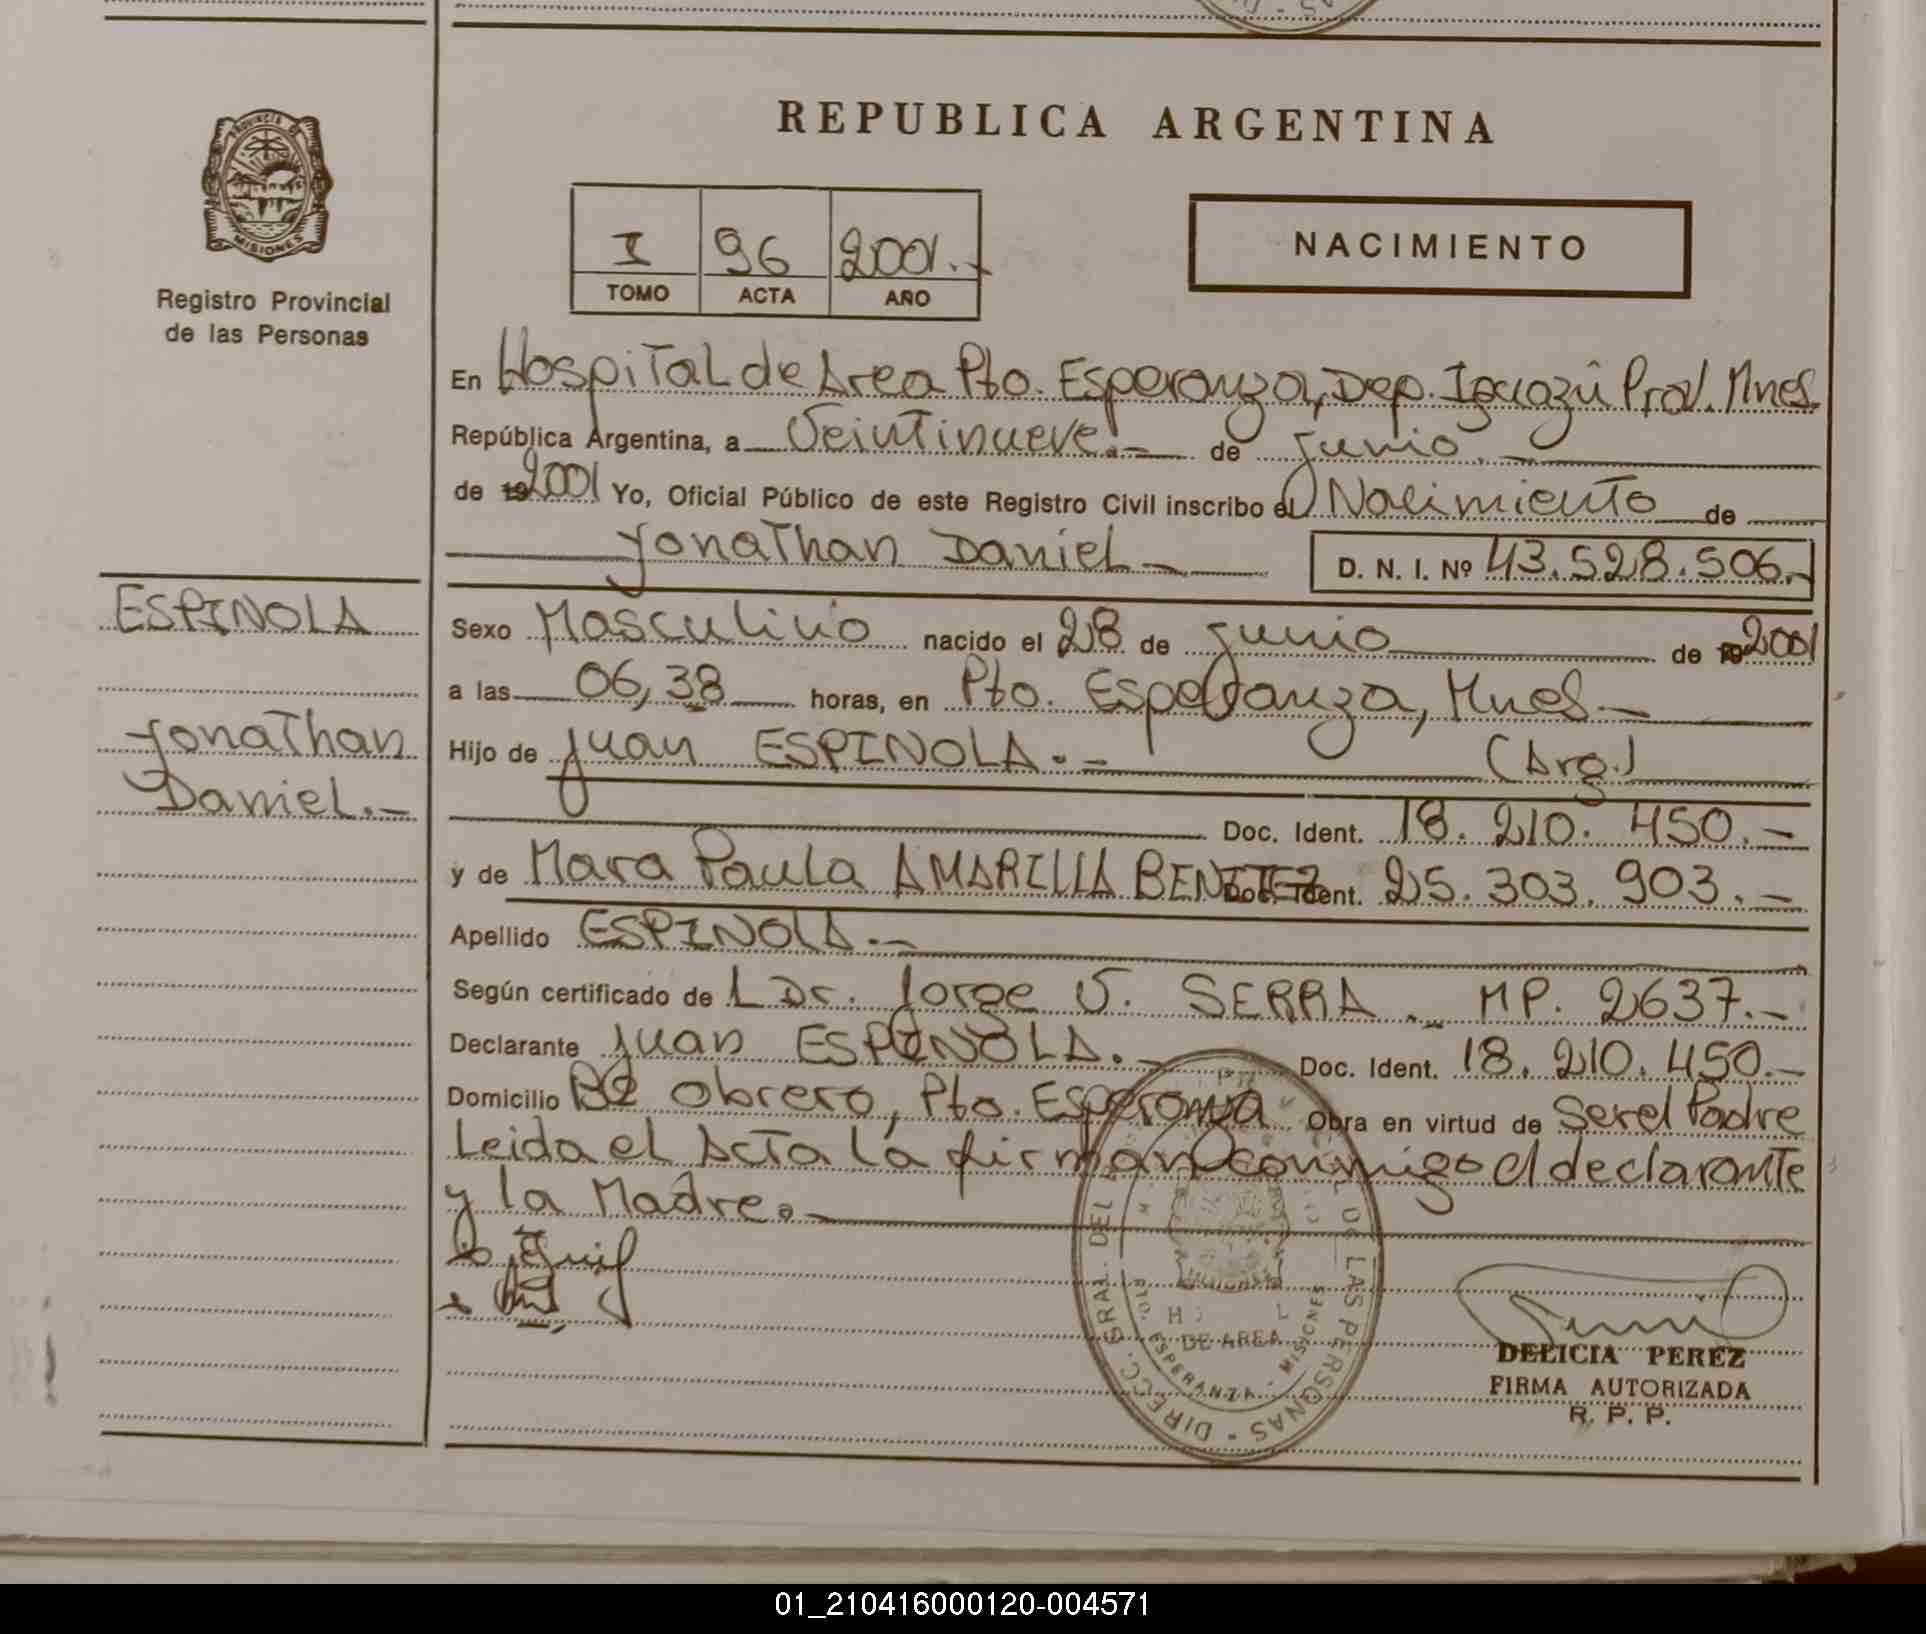 REPUBLICA ARGENTINA
PROVINCIA DE
MISIONES
Registro Provincial
de las Personas
I 96 2001.-
TOMO ACTA AÑO
NACIMIENTO
En Hospital de Area Pto. Esperanza, Dep. Iguazú Prov. Mnes.
República Argentina, a Veintinueve.- de junio.-
de 19 2001 Yo, Oficial Público de este Registro Civil inscribo el Nacimiento de
Yonathan Daniel - D. N. I. Nº 43.528.506.-
ESPINOLA
Yonathan
Daniel.-
Sexo Masculino nacido el 28 de junio de 19 2001
a las 06,38 horas, en Pto. Esperanza, Mnes.-
Hijo de Juan ESPINOLA.- (Arg.)
Doc. Ident. 18.210.450.-
y de Mara Paula AMARILLA BENITEZ Doc. Ident. 25.303.903.-
Apellido ESPINOLA.-
Según certificado de L Dr. Jorge V. SERRA.- MP. 2637.-
Declarante Juan ESPINOLA.- Doc. Ident. 18.210.450.-
Domicilio Bº Obrero, Pto. Esperanza Obra en virtud de Ser el Padre
Leida el Acta la firman conmigo el declarante
y la Madre.-
DIRECC. GRAL. DEL DE LAS PERSONAS
DE AREA
ESPERANZA - MISIONES
DELICIA PEREZ
FIRMA AUTORIZADA
R. P. P.
01_210416000120-004571